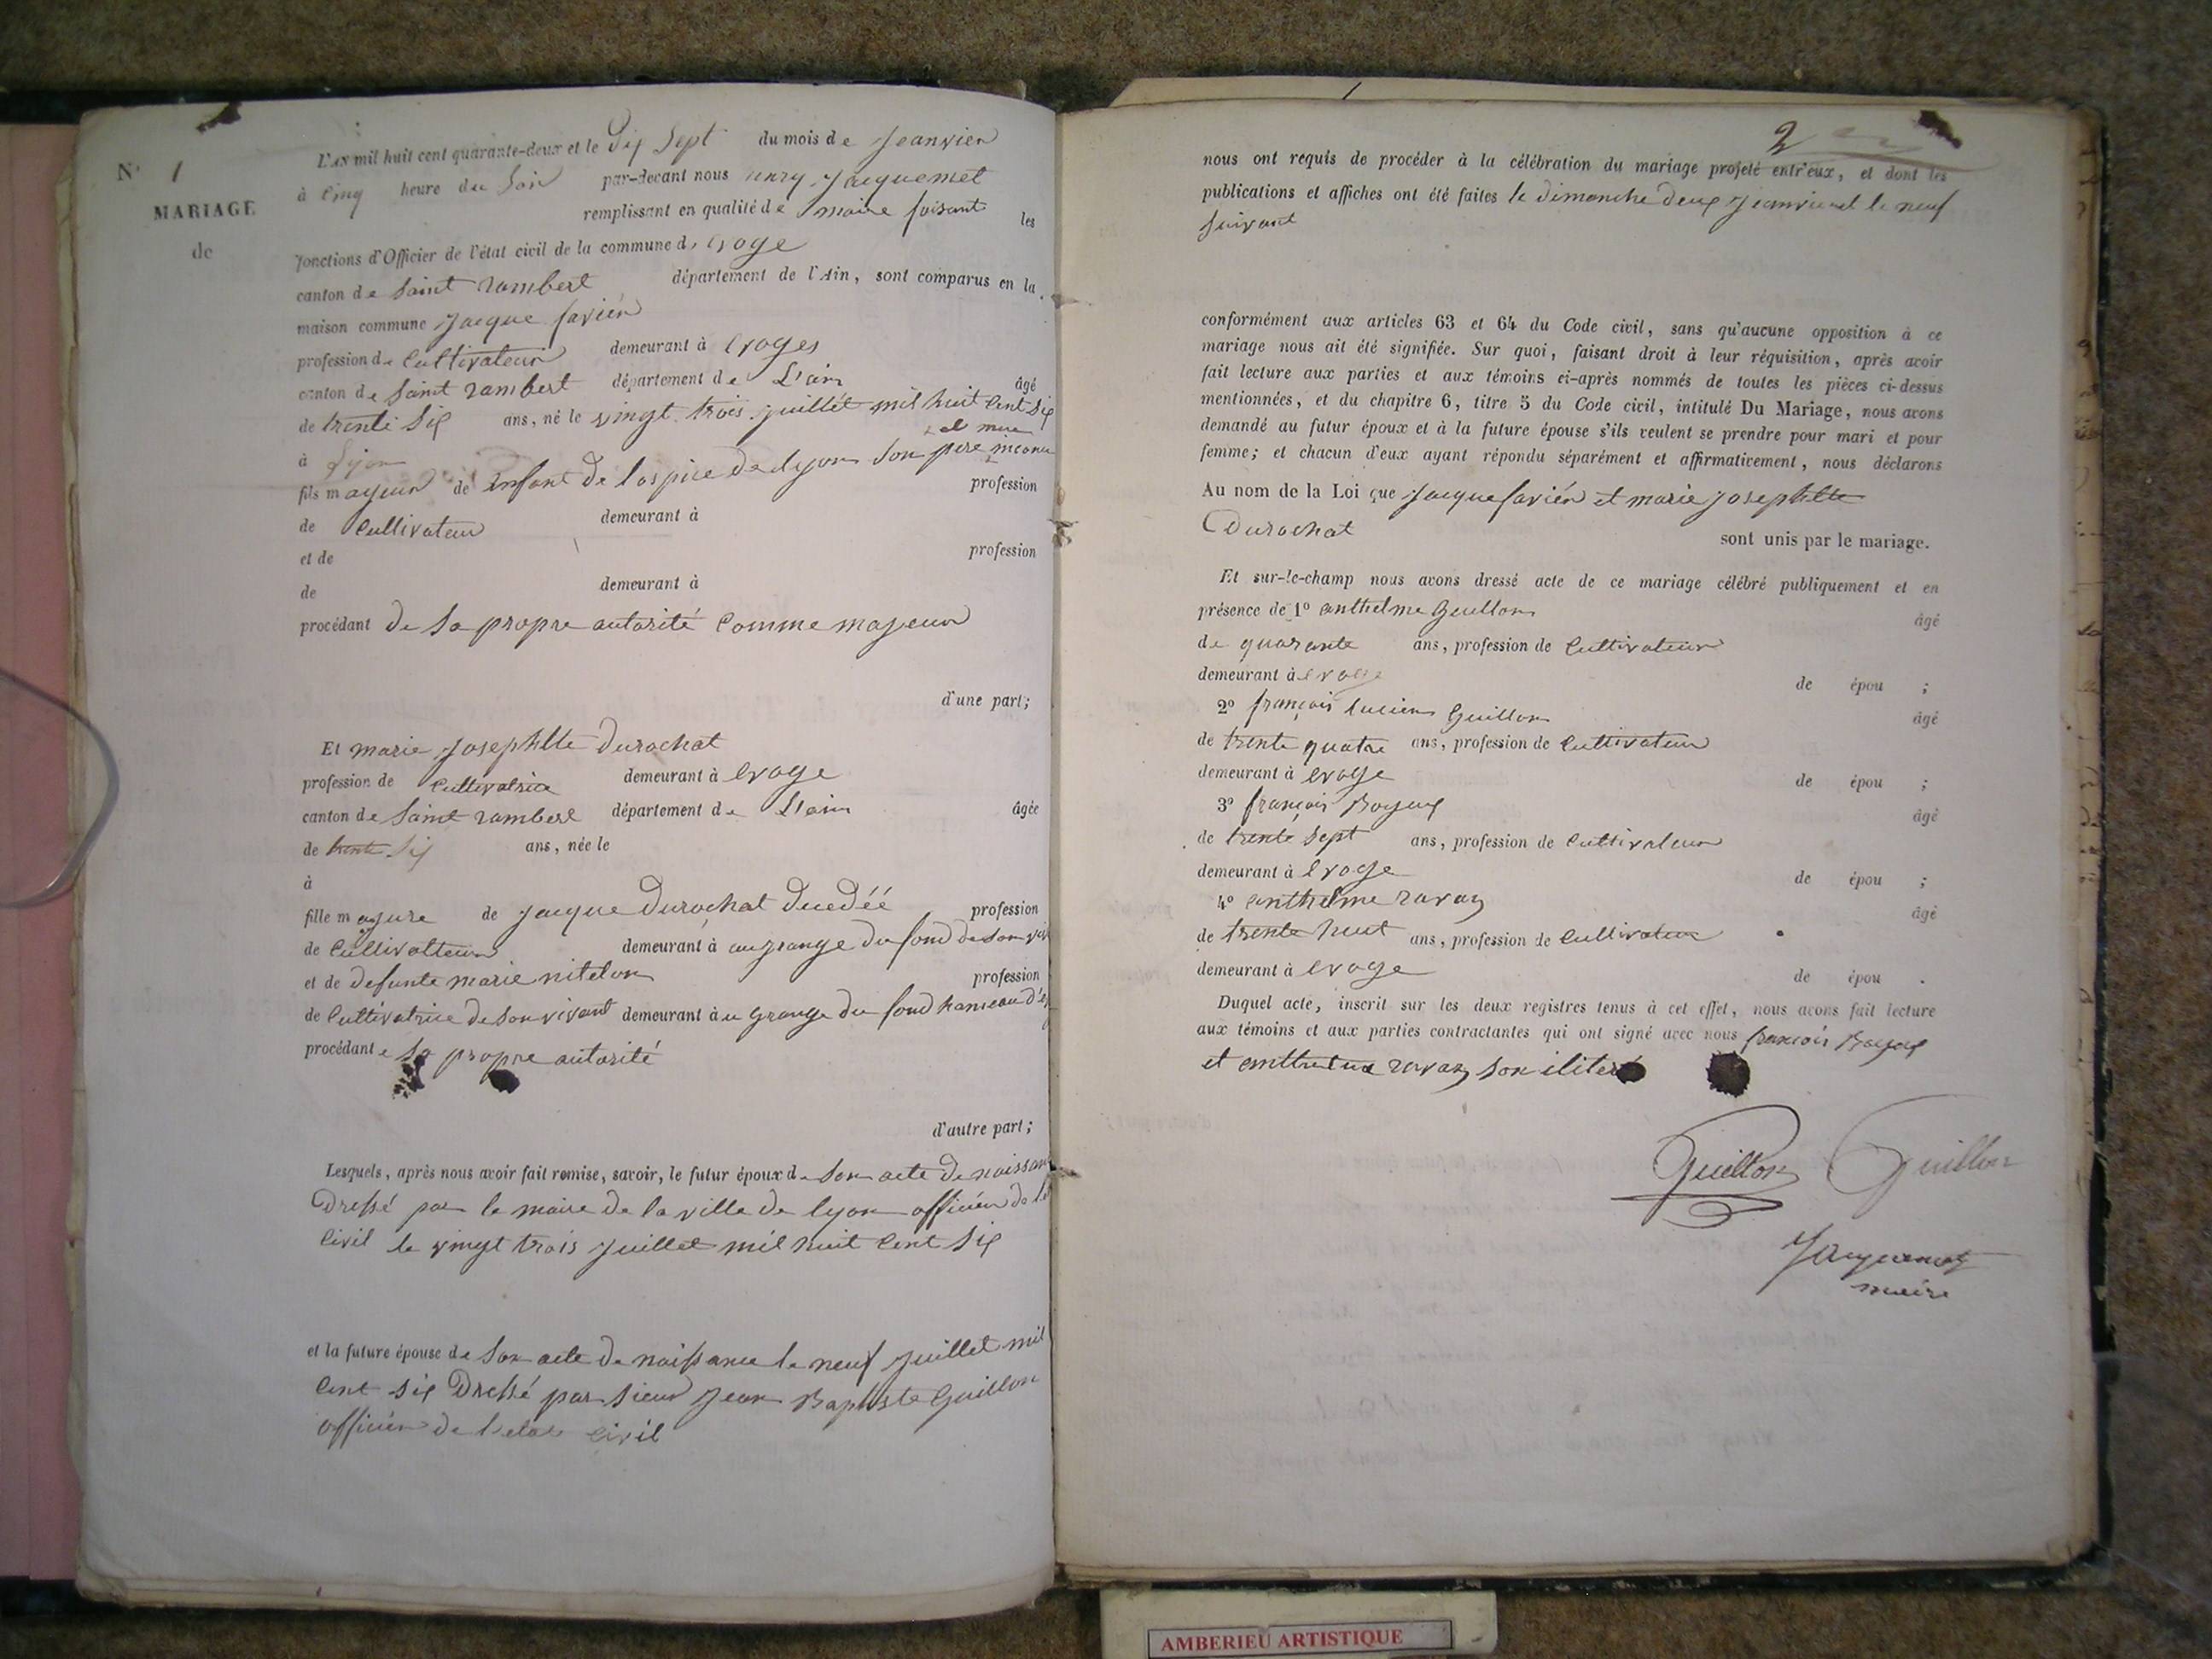 N° 1
MARIAGE
de
L'An mil huit cent quarante-deux et le Dix Sept du mois de Jeanvier
à Cinq heure du Soir par-devant nous henry Jacquemet
remplissant en qualité de maire faisant les
fonctions d'Officier de l'état civil de la commune d' evoge
canton de Saint rambert département de l'Ain, sont comparus en la
maison commune Jacque Savién
profession de Cultivateur demeurant à Evoges
canton de Saint rambert département de L'ain âgé
de trente Six ans, né le vingt trois juillet mil huit Cent Six
et mere
à Lyon
fils mayeur de Enfant de lospice de lyon Son pere inconu
profession
de Cultivateur demeurant à
et de profession
de demeurant à
procédant de Sa propre autorité Comme mayeur
d'une part;
Et marie Josephtte Durochat
profession de Cultivatrice demeurant à Evoge
canton de Saint rambert département de L'ain âgée
de trente Six ans, née le
à
fille mayure de Jacque Durochat Ducdéé profession
de Cultivatteur demeurant à au grange du fond de Son
et de defunte marie nitelon profession
de Cultivatrice de Son vivant demeurant à au grange du fond hameau
procédant e Sa propre autorité
d'autre part;
Lesquels, après nous avoir fait remise, savoir, le futur époux de Son acte de naissan
Dressé par le maire de la ville de lyon officier de
Civil le vingt trois Juillet mil huit Cent Six
et la future épouse de Son acte de naissance le neuf Juillet mil
Cent Six Dressé par Sieur Jean Baptiste Guillon
officier de l'etat Civil
2
nous ont requis de procéder à la célébration du mariage projeté entr'eux, et dont les
publications et affiches ont été faites le dimanche deux Jeanvier et le neuf
Suivant
conformément aux articles 63 et 64 du Code civil, sans qu'aucune opposition à ce
mariage nous ait été signifiée. Sur quoi, faisant droit à leur réquisition, après avoir
fait lecture aux parties et aux témoins ci-après nommés de toutes les pièces ci-dessus
mentionnées, et du chapitre 6, titre 5 du Code civil, intitulé Du Mariage, nous avons
demandé au futur époux et à la future épouse s'ils veulent se prendre pour mari et pour
femme; et chacun d'eux ayant répondu séparément et affirmativement, nous déclarons
Au nom de la Loi que Jacque Savién et marie Josephtte
Durochat sont unis par le mariage.
Et sur-le-champ nous avons dressé acte de ce mariage célébré publiquement et en
présence de 1° anthelme Guillon âgé
de quarante ans, profession de Cultivateur
demeurant à evoge de épou ;
2° françois lucien Guillon âgé
de trente quatre ans, profession de Cultivateur
demeurant à evoge de épou ;
3° françois Boyeux âgé
de trente Sept ans, profession de Cultivateur
demeurant à Evoge de épou ;
4° anthelme ravaz âgé
de trente huit ans, profession de Cultivateur
demeurant à evoge de épou .
Duquel acte, inscrit sur les deux registres tenus à cet effet, nous avons fait lecture
aux témoins et aux parties contractantes qui ont signé avec nous francois Boyeux
et anthelme ravaz Son iliteré
Guillon Guillon
Jacquemet
maire
AMBERIEU ARTISTIQUE